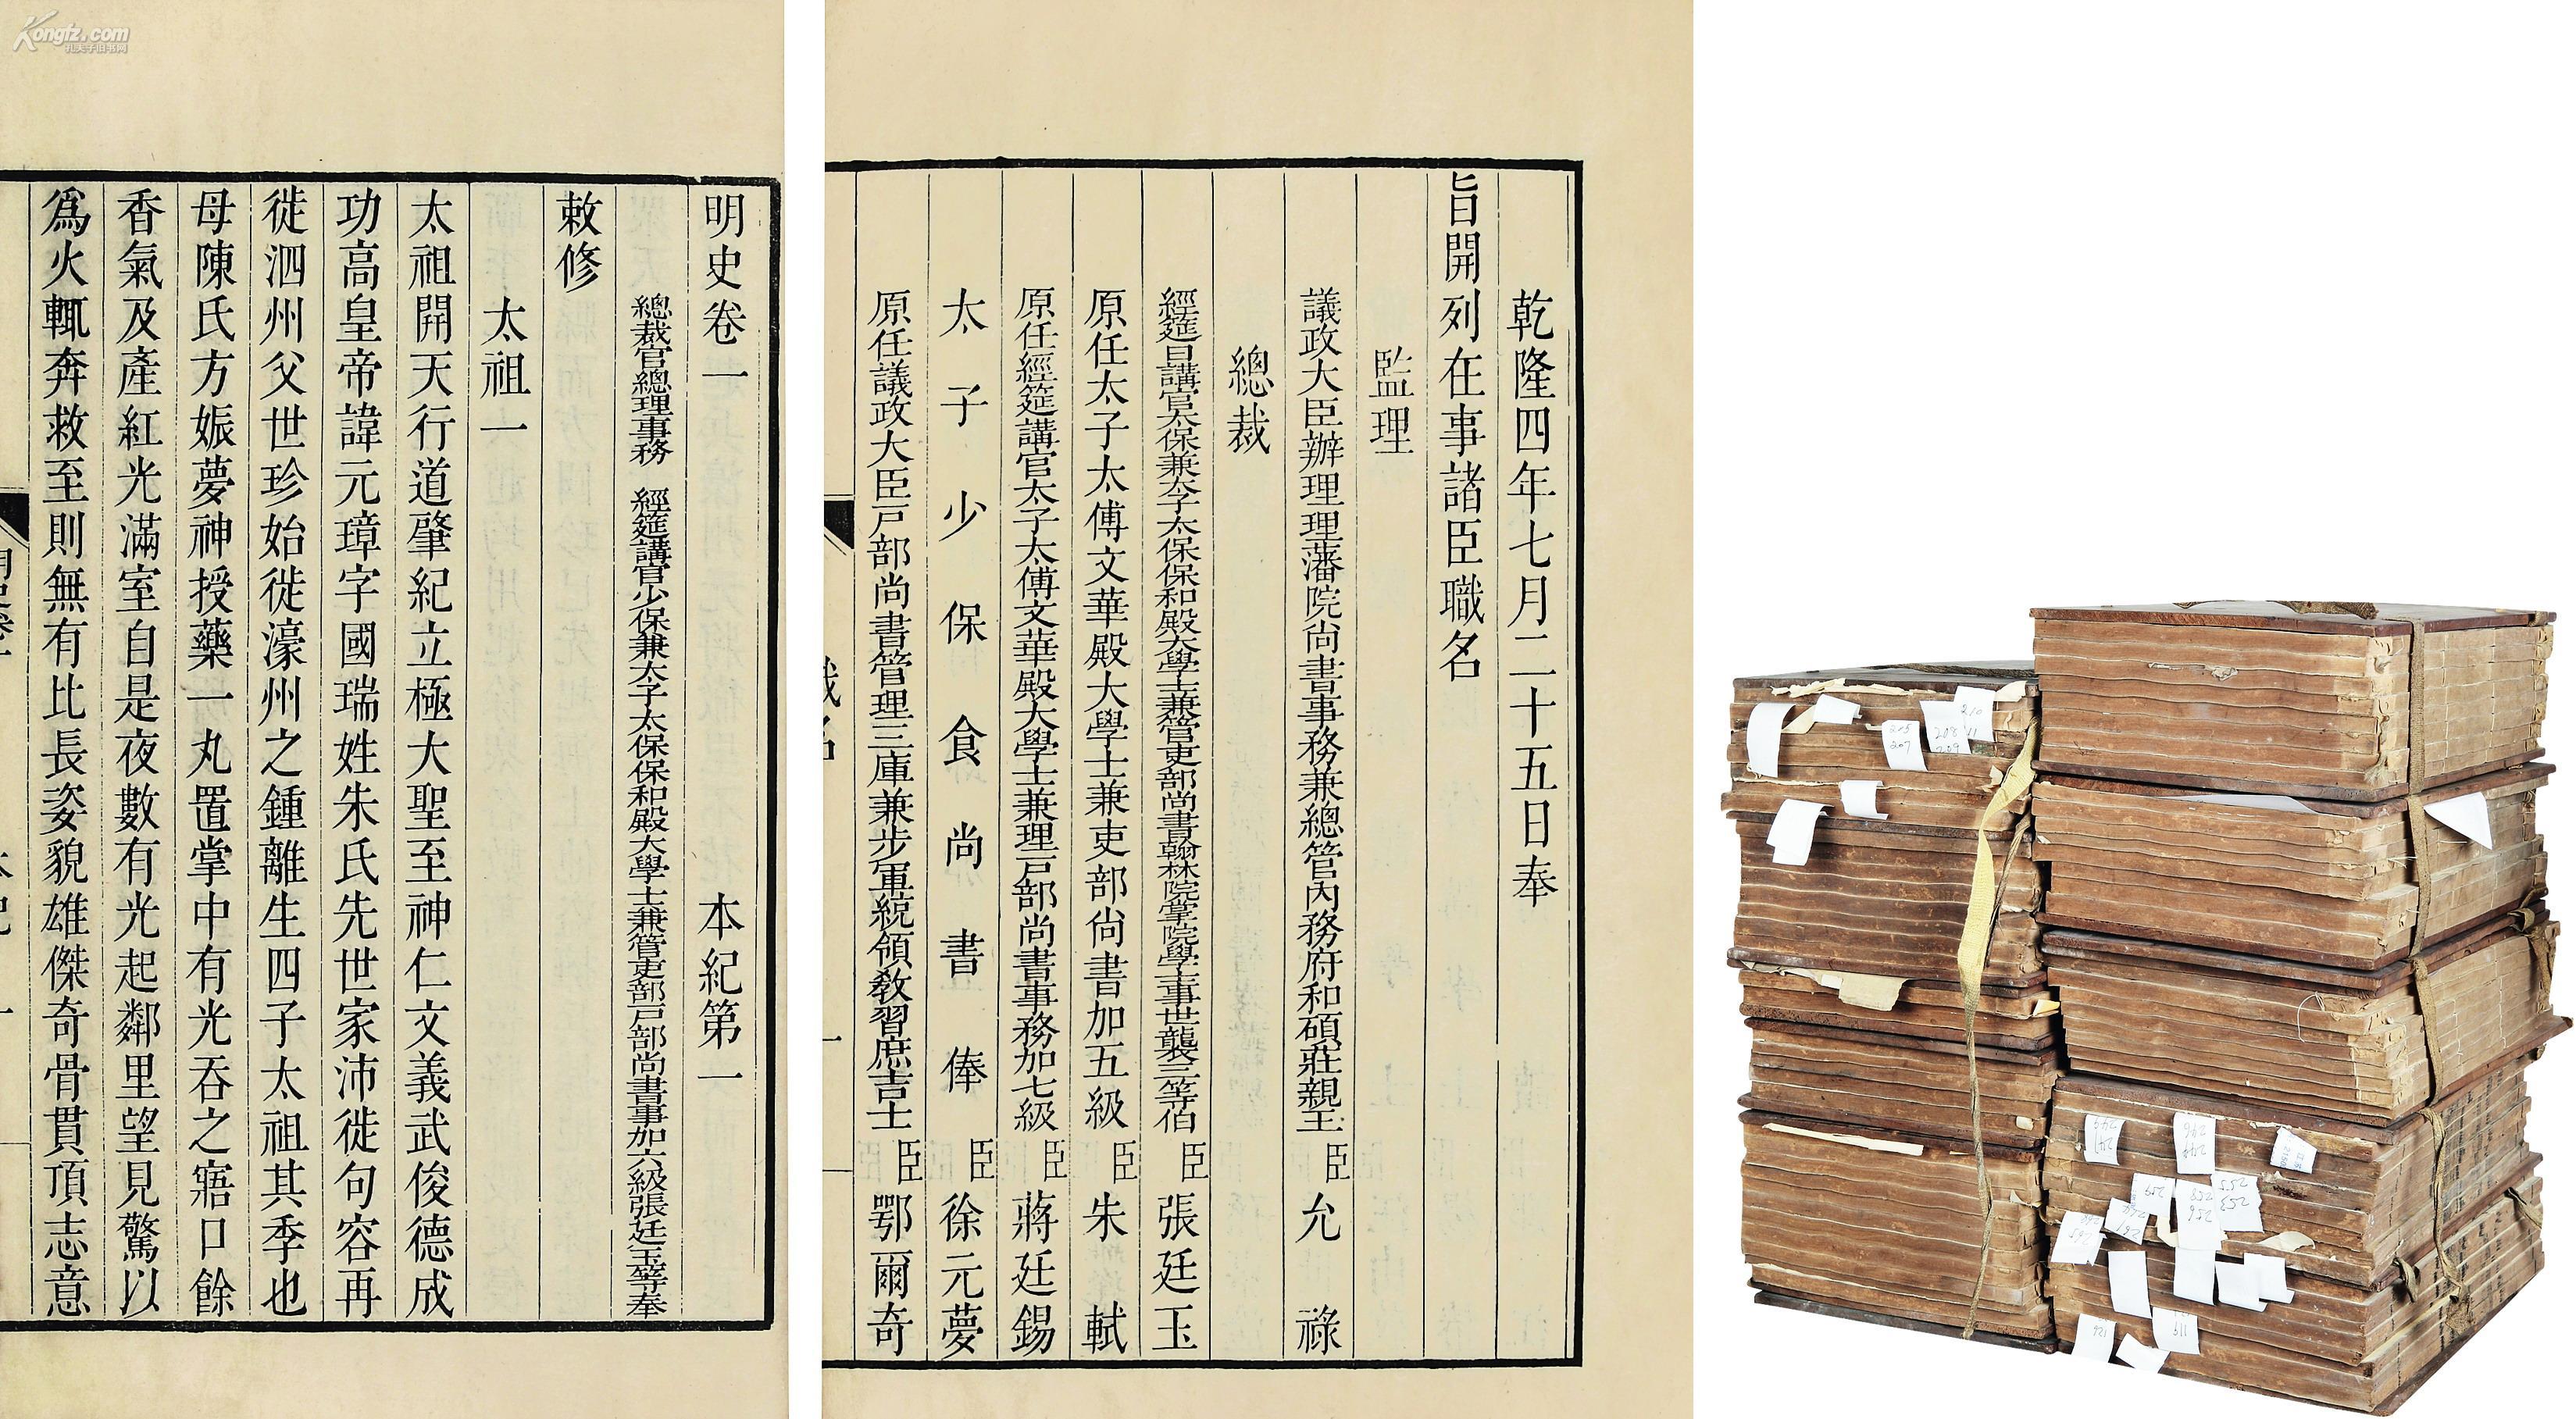 Kongfz.com
孔夫子旧书网
明史卷一 本紀第一
總裁官總理事務 經筵講官少保兼太子太保保和殿大學士兼管吏部戶部尚書事加六級張廷玉等奉
敕修
太祖一
太祖開天行道肇紀立極大聖至神仁文義武俊德成
功高皇帝諱元璋字國瑞姓朱氏先世家沛徙句容再
徙泗州父世珍始徙濠州之鍾離生四子太祖其季也
母陳氏方娠夢神授藥一丸置掌中有光吞之寤口餘
香氣及產紅光滿室自是夜數有光起鄰里望見驚以
為火輒奔救至則無有比長姿貌雄傑奇骨貫頂志意
乾隆四年七月二十五日奉
旨開列在事諸臣職名
監理
議政大臣辦理理藩院尚書事務兼總管內務府和碩莊親王臣允祿
總裁
經筵日講官太保兼太子太保保和殿大學士兼管吏部尚書翰林院掌院學士事世襲三等伯臣張廷玉
原任太子太傅文華殿大學士兼吏部尚書加五級臣朱軾
原任經筵講官太子太傅文華殿大學士兼理戶部尚書事務加七級臣蔣廷錫
太子少保食尚書俸臣徐元夢
原任議政大臣戶部尚書管理三庫兼步軍統領教習庶吉士臣鄂爾奇
職名
一
210
207
208
209